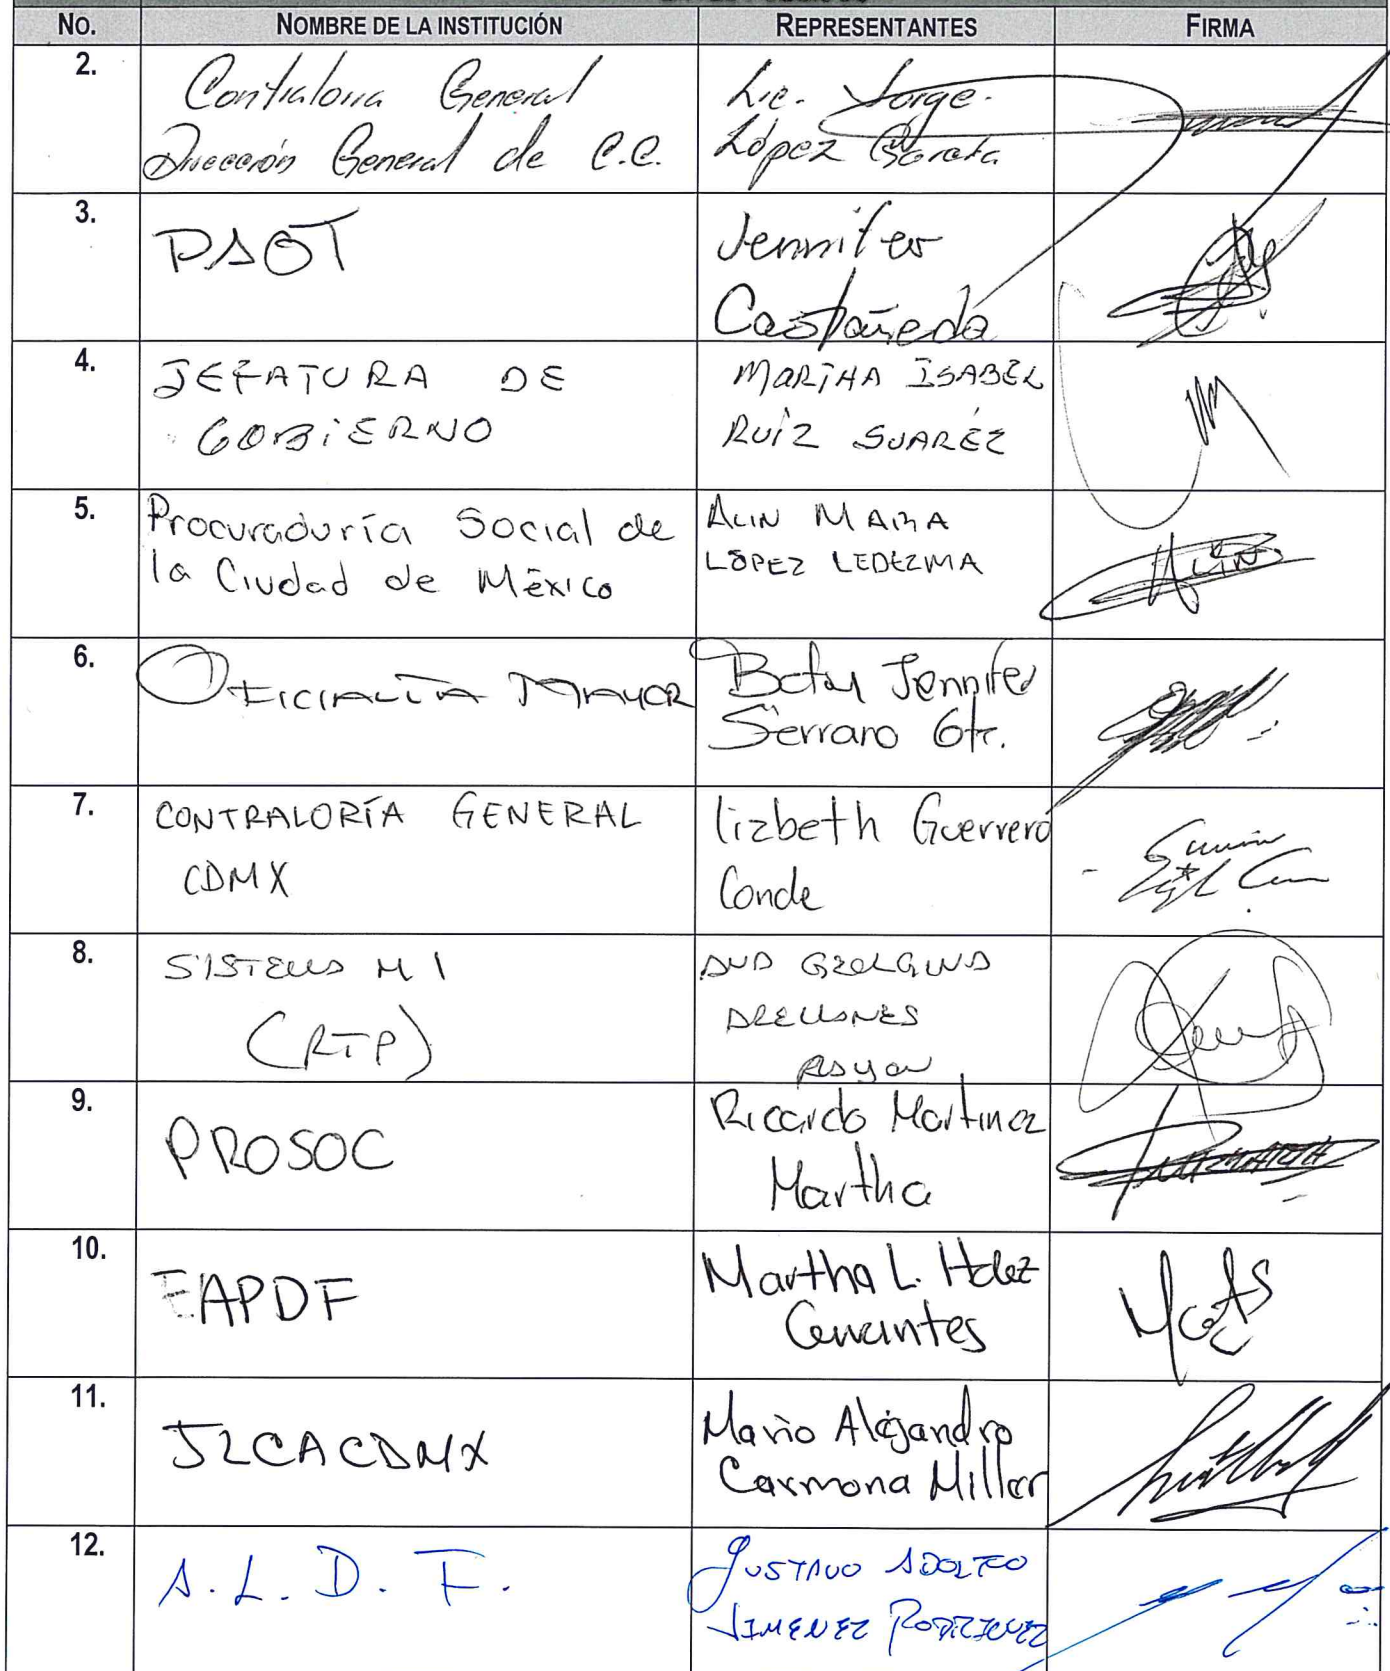 NO. NOMBRE DE LA INSTITUCIÓN REPRESENTANTES FIRMA
2.
Contraloria General
Dirección General de C.C.
Lic. Jorge.
López
3.
PAOT
Jennifer
Castañeda
4.
JEFATURA DE
GOBIERNO
MARTHA ISABEL
RUÍZ SUARÉZ
5.
Procuraduría Social de
la Ciudad de México
ALIN
LÓPEZ LEDEZMA
ALIN
6.
OFICIALÍA MAYOR
Jennifer
Serrano Gtr.
7.
CONTRALORÍA GENERAL
CDMX
lizbeth Guerrero
Conde
8.
SISTEMA M1
(RTP)
ANA GEORGINA
ARELLANES
9.
PROSOC
Ricardo Martinez
Martha
10.
EAPDF
Martha L. Hdez
Cervantes
11.
JLCACDMX
Mario Alejandro
Carmona Miller
12.
A. L. D. F.
GUSTAVO ADOLFO
JIMENEZ RODRIGUEZ